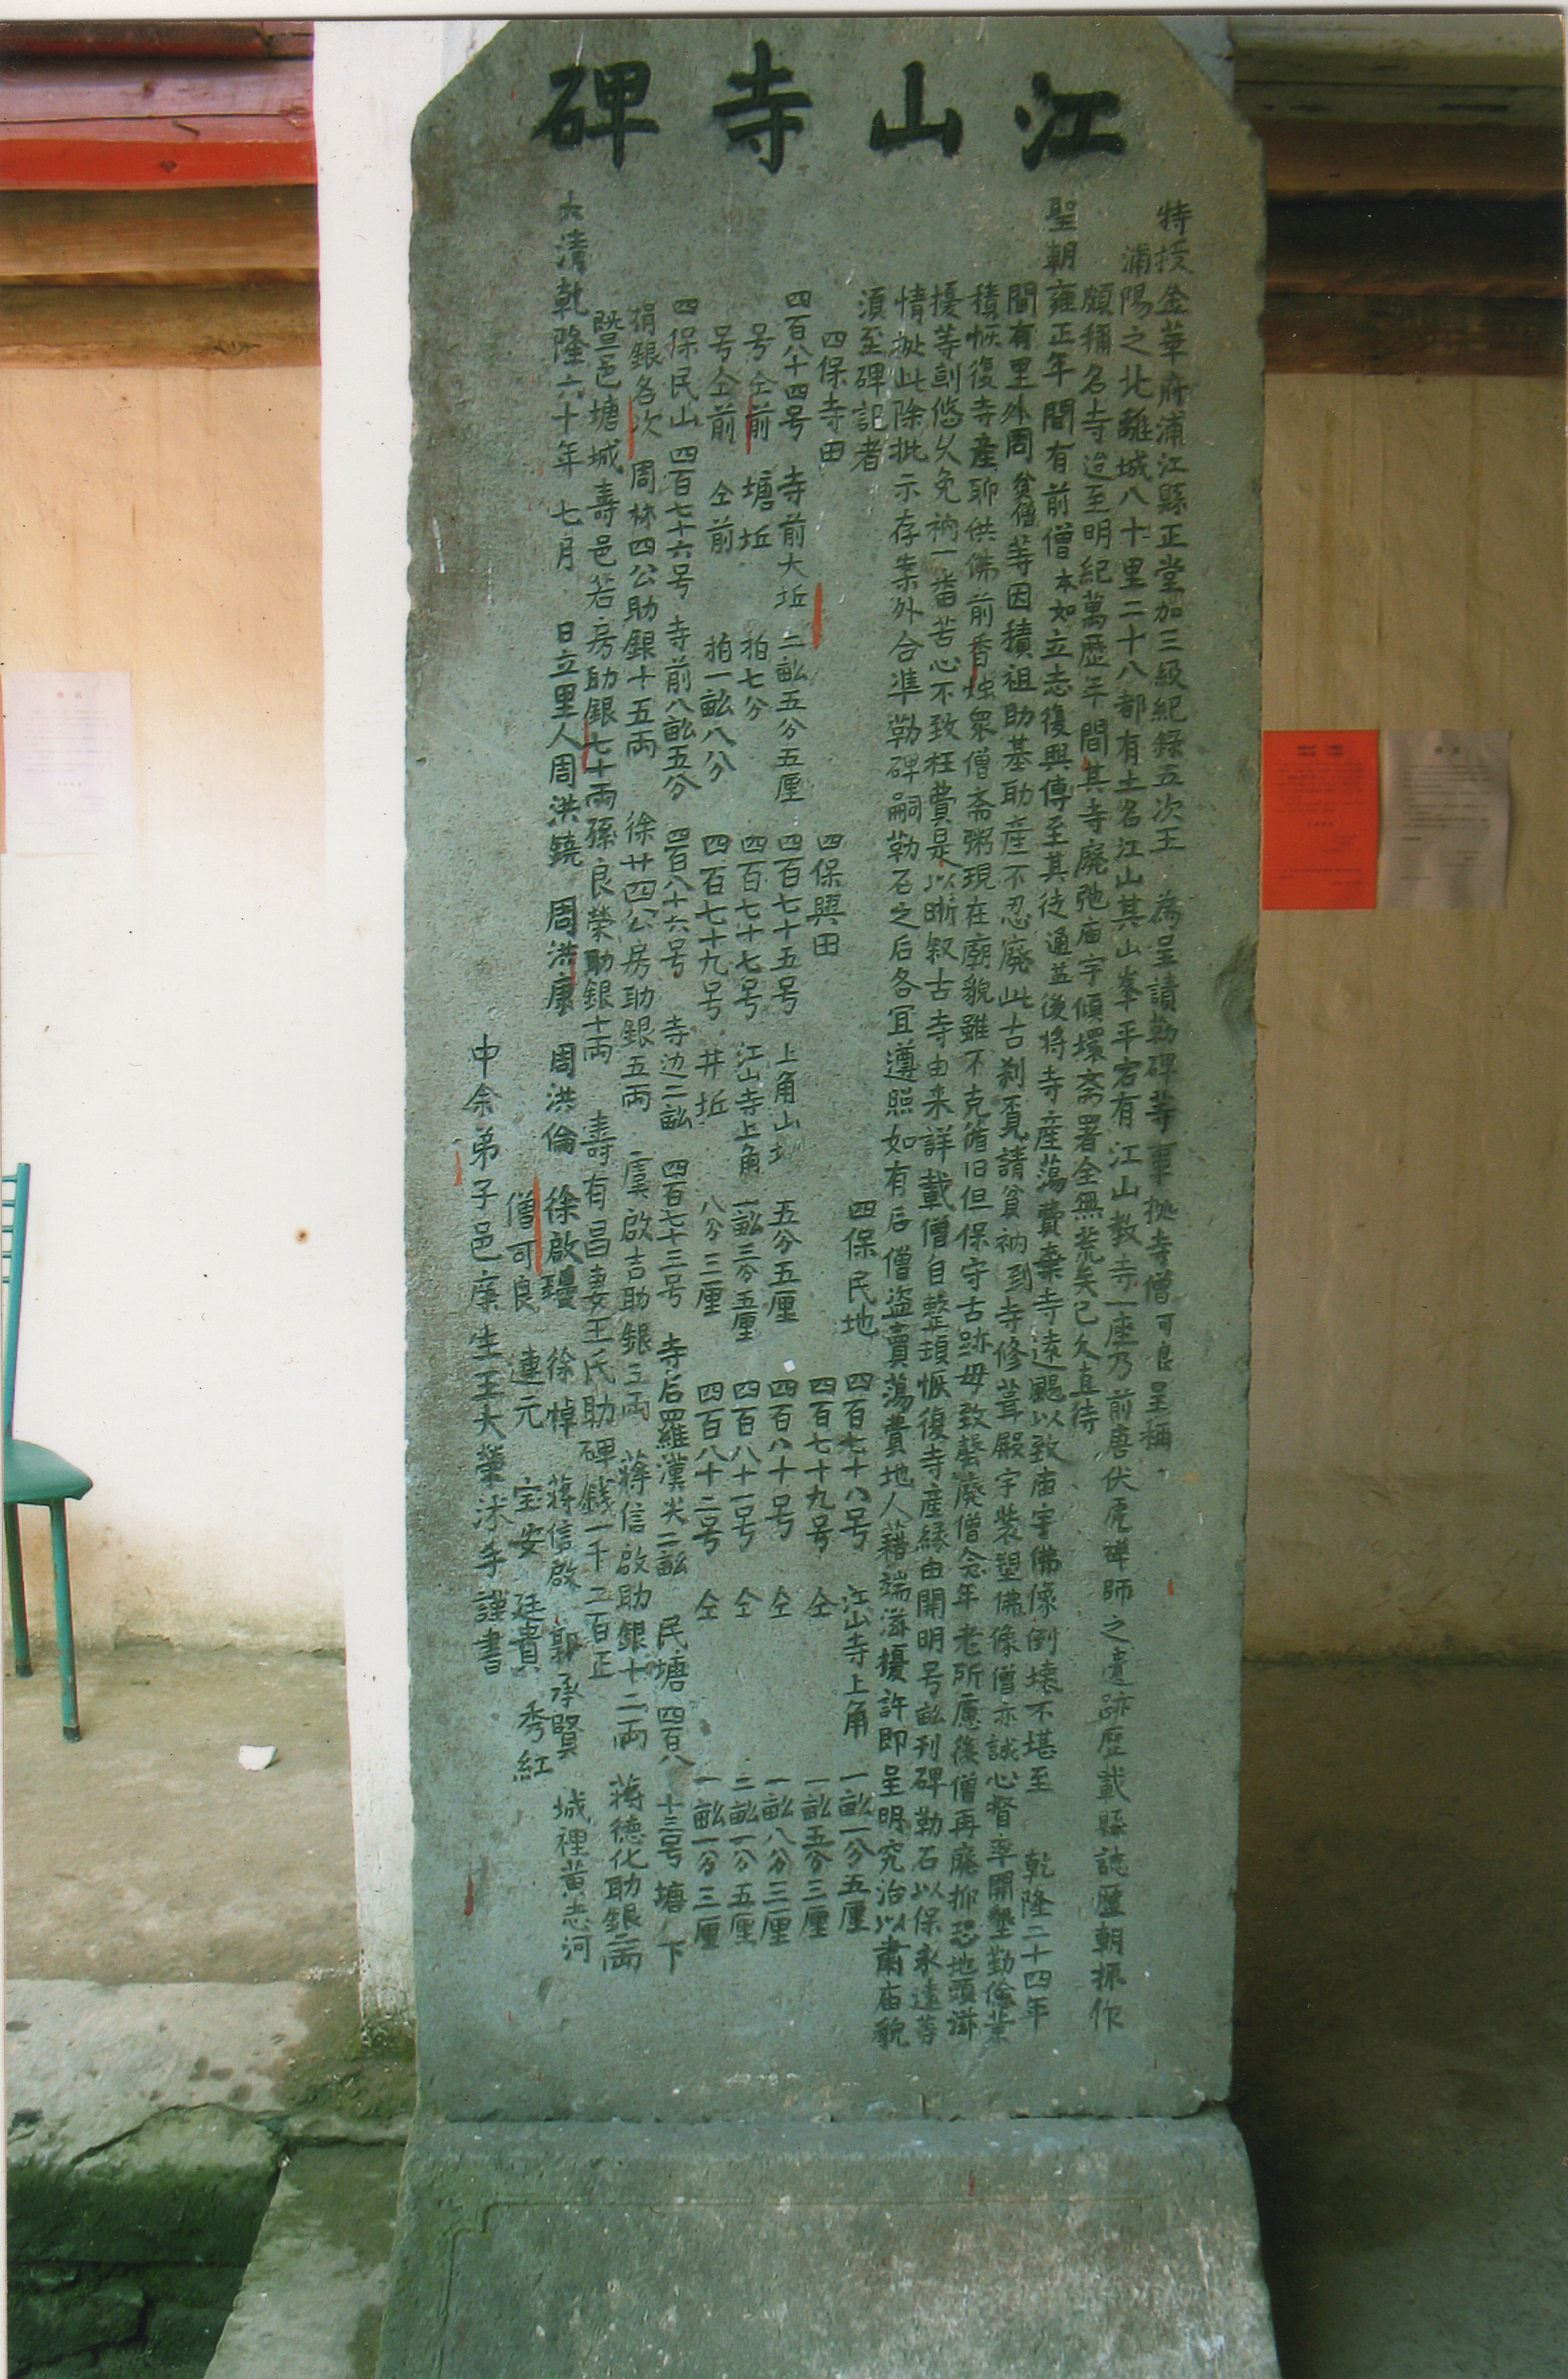 江山寺碑
特授金華府浦江縣正堂加三級紀錄五次王 為呈請勒碑等事據寺僧可良呈稱
浦陽之北離城八十里二十八都有土名江山其山峯平宕有江山教寺一座乃前唐伏虎禅師之遺跡歷載縣誌歷朝振作
頗稱名寺迨至明紀萬歷年間其寺廢弛庙宇傾壞斋署全無荒矣已久直待
聖朝雍正年間有前僧本如立志復興傳至其徒通益後将寺産蕩費棄寺遠颺以致庙宇佛像倒壞不堪至 乾隆二十四年
間有里外周 等因積祖助基助産不忍廢此古刹 請貧衲到寺修葺嚴宇装塑佛像僧亦誠心督率開墾勤儉業
積恢復寺産聊供佛前香燭眾僧斋粥現在廟貌雖不克循旧但保守古跡毋致 廢僧念年老所慮後僧再廢抑恐地頭滋
擾等到悠久免衲一番苦心不致枉費是以晰叙古寺由来詳載僧自整頓恢復寺産緣由開明号畝刊碑勒石以保永遠等
情据此除批示存案外合准勒碑嗣勒石之后各宜遵照如有后僧盗賣蕩費地人藉端滋擾許即呈明究治以肅庙貌
須至碑記者 四保民地 四百七十八号 江山寺上角 一畝一分五厘
四保寺田 四保興田 四百七十九号 仝 一畝五分三厘
四百八十四号 寺前大坵 二畝五分五厘 四百七十五号 上角山 五分五厘 四百八十号 仝 一畝八分三厘
号仝前 塘坵 拍七分 四百七十七号 江山寺上角 一畝三分五厘 四百八十一号 仝 二畝一分五厘
号仝前 仝前 拍一畝八分 四百七十九号 井坵 八分三厘 四百八十二号 仝 一畝一分三厘
四保民山 四百七十六号 寺前八畝五分 四百八十六号 寺边二畝 四百七十三号 寺后羅漢尖二畝 民塘 四百八十三号 塘 下
捐銀各次 周林四公助銀十五両 徐廿四公房助銀五両 虞啟吉助銀三両 蒋信啟助銀十二両 蒋德化助銀 両
暨邑塘城壽邑若房助銀七十両孫良榮助銀十両 壽有昌妻王氏助碑錢一千二百正
大清乾隆六十年七月 日立里人周洪鐃 周洪康 周洪倫 徐啟 徐悼 蒋信啟 郭承賢 城裡黄志河
僧可良 連元 宝安 廷貴 秀紅
中余弟子邑庠生王大榮沐手謹書